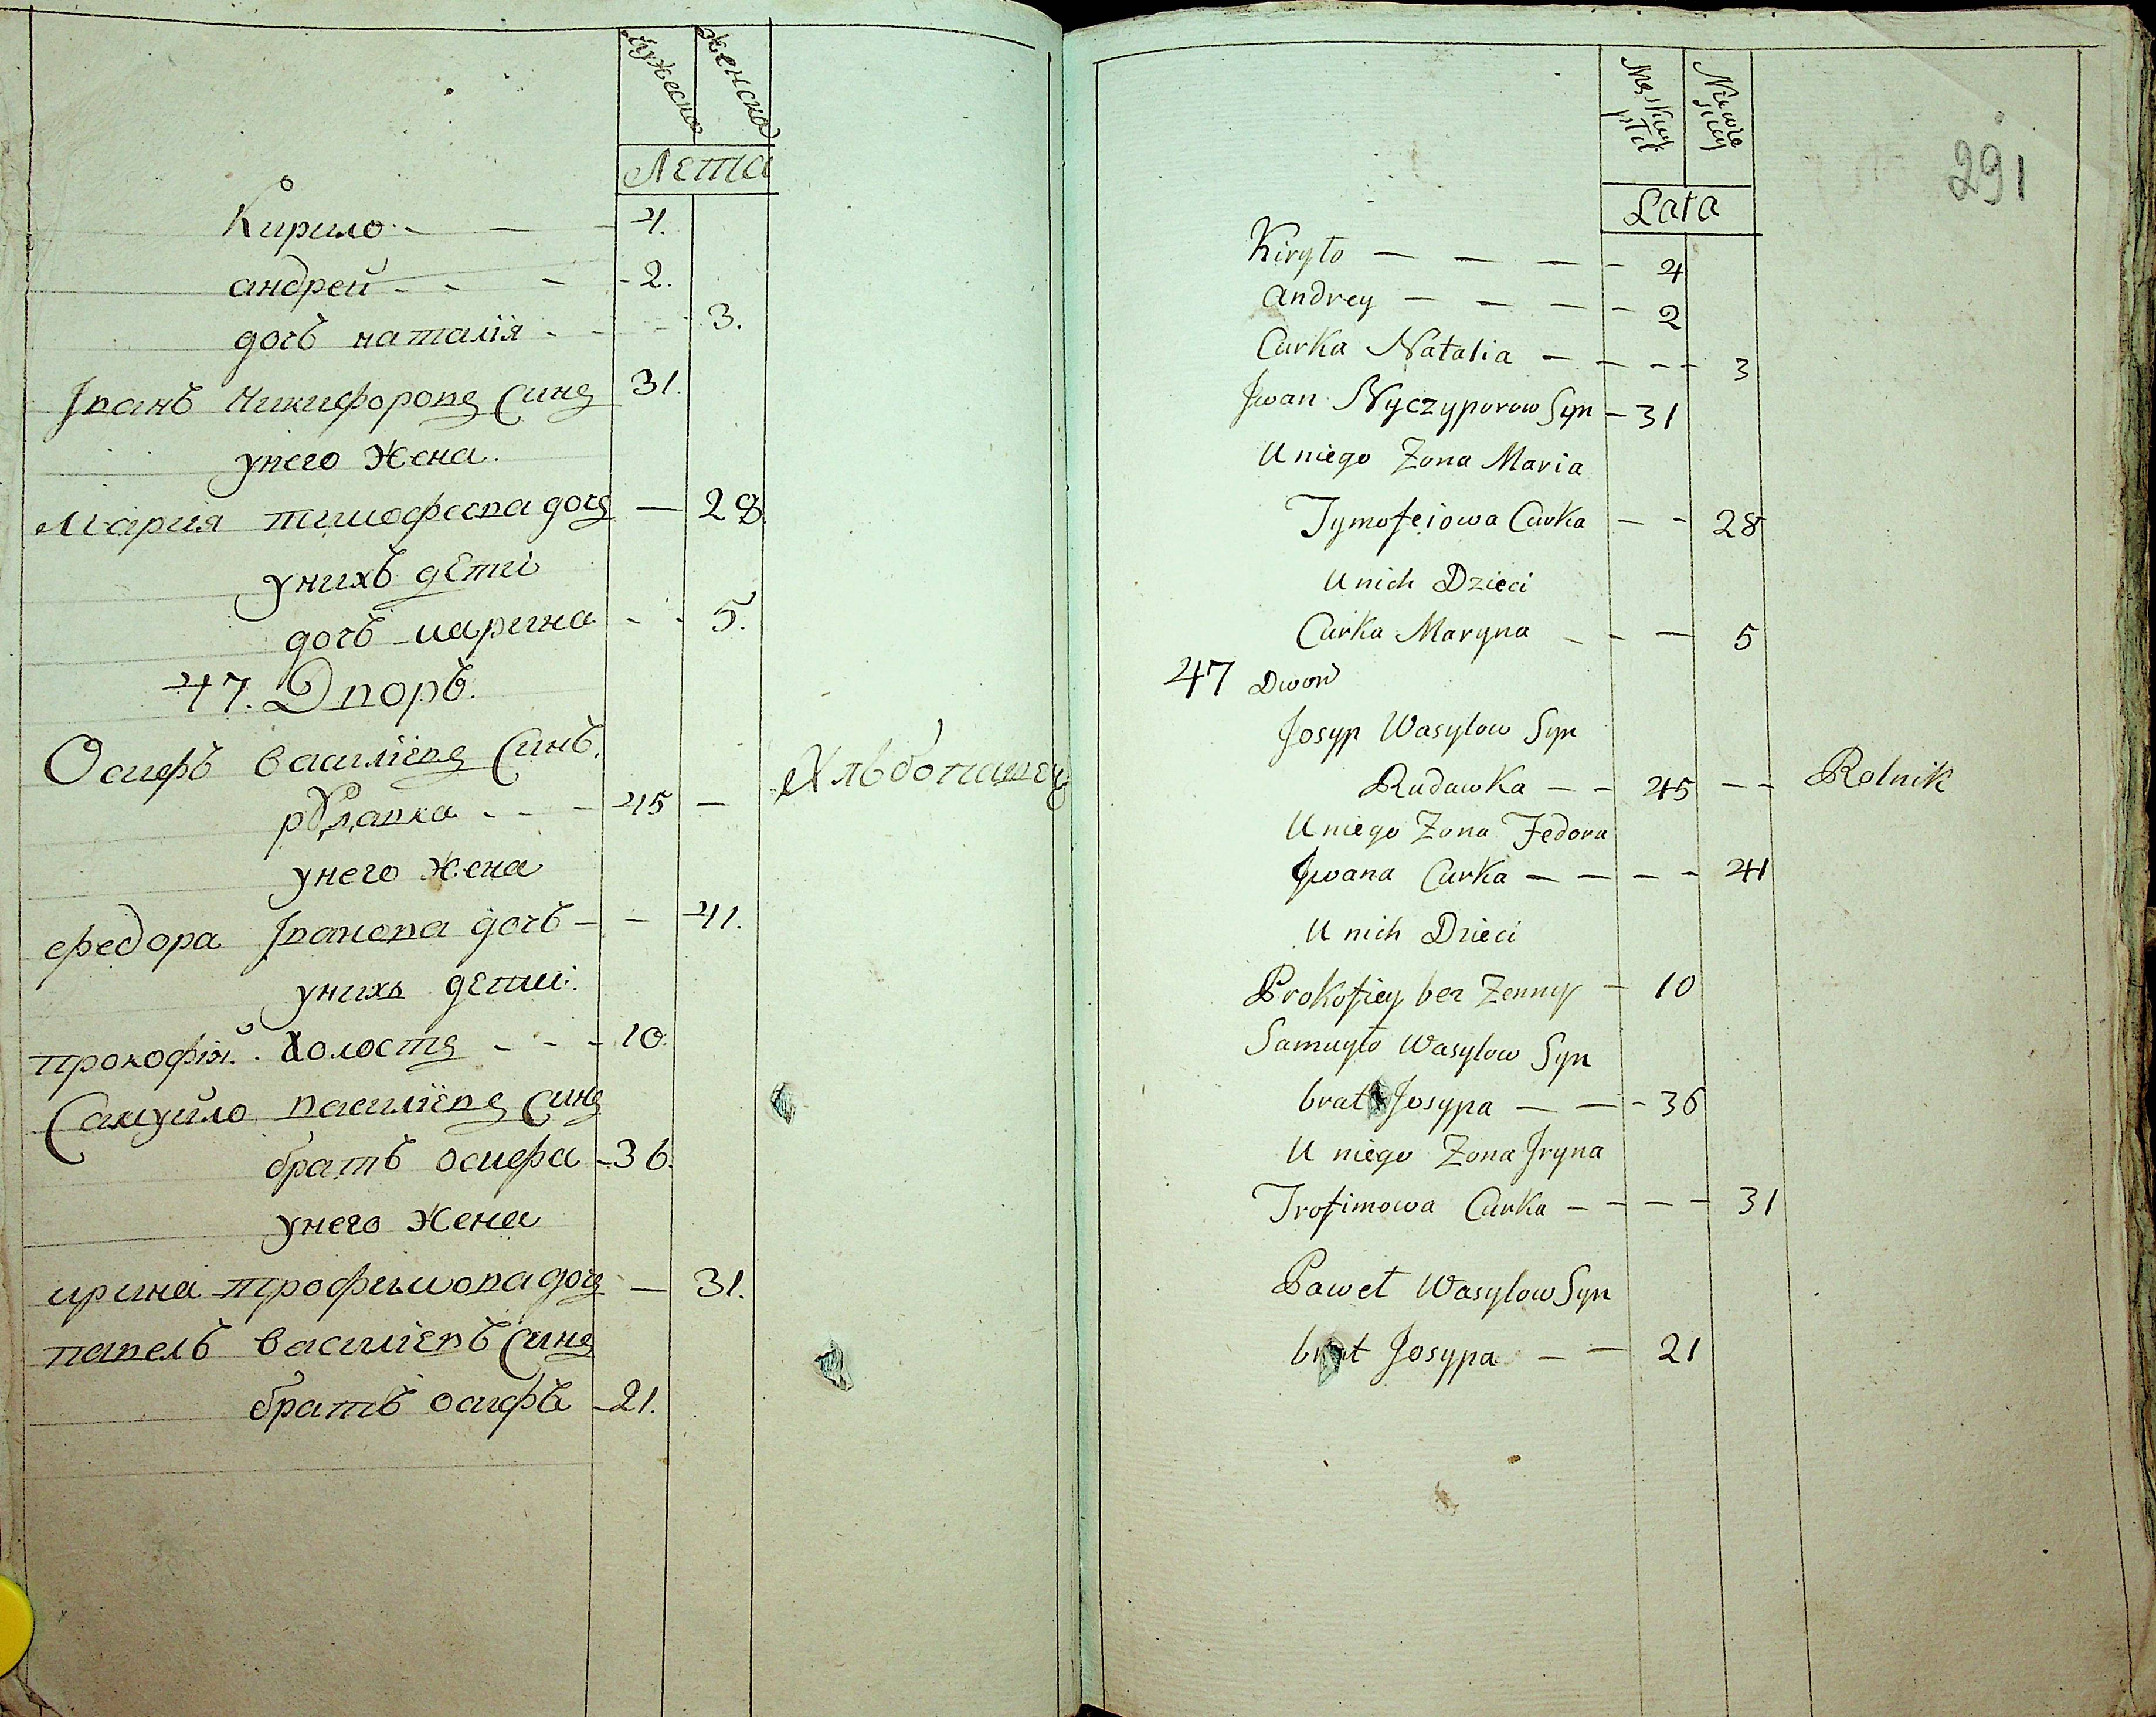 мужеска женска
Лета
Кирило 4.
андрей 2.
дочь наталія 3.
Іванъ Никифоровъ Синъ 31.
унего жена.
Мария тимофеева дочъ 28.
унихъ дети
дочъ марина 5.
47. Дворъ.
Осифъ василіевъ Синъ.
рудавка 45 Хльбопашец
унего жена
федора Іванова дочъ 41.
унихъ дети:
прокофій. холостъ 10.
Самуйло василіевъ Синъ
братъ осифа 36.
унего жена
ирина трофимова дочъ 31.
павелъ василіевъ Синъ
братъ осифа 21.
Męskey płci Niewieściey
291
Lata
Kiryło 4
Andrey 2
Curka Natalia 3
Jwan Nyczyporow Syn 31
U niego Zona Maria
Tymofeiowa Curka 28
U nich Dzieci
Curka Maryna 5
47 Dwor
Josyp Wasylow Syn
Rudawka 45 Rolnik
U niego Zona Fedora
Jwana Curka 41
U nich Dzieci
Prokofiey bez Zenny 10
Samuyło Wasylow Syn
brat Josypa 36
U niego Zona Jryna
Trofimowa Curka 31
Paweł Wasylow Syn
brat Josypa 21